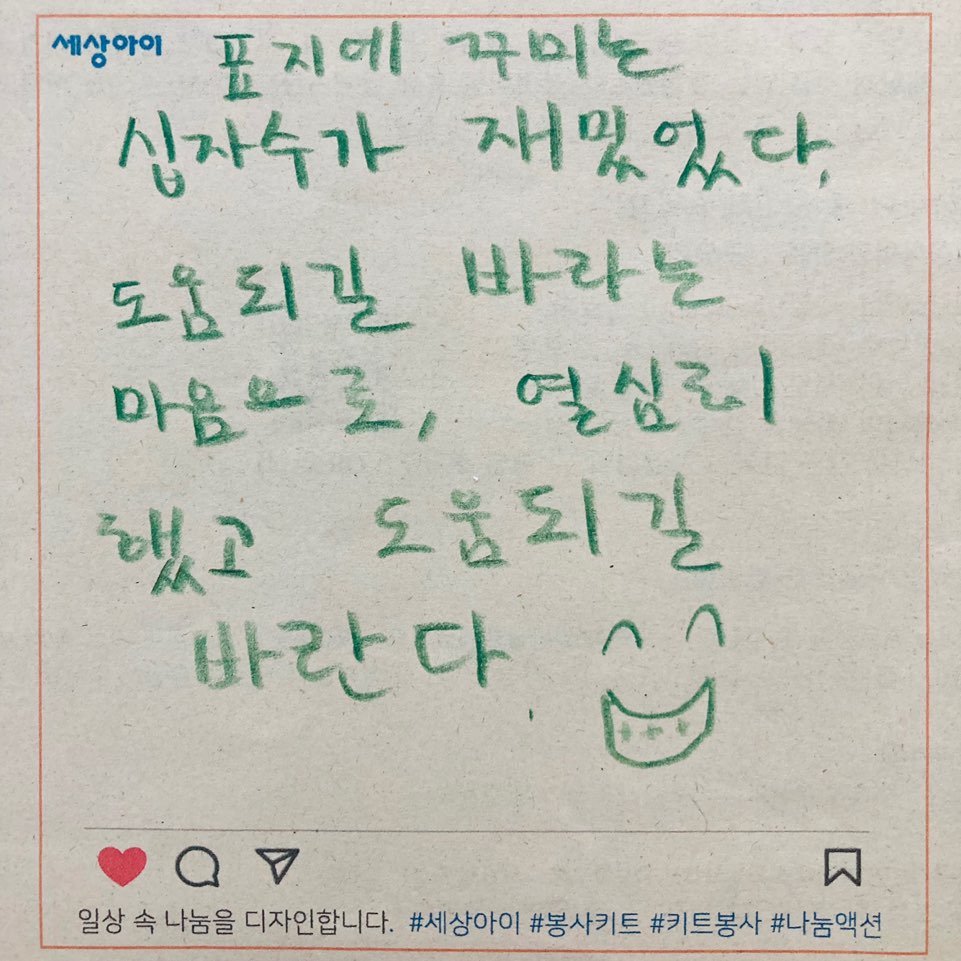 세상아이
표지에 꾸미는
십자수가 재밌었다.
도움되길 바라는
마음으로, 열심히
했고 도움되길
바란다.
일상 속 나눔을 디자인합니다. #세상아이 #봉사키트 #키트봉사 #나눔액션